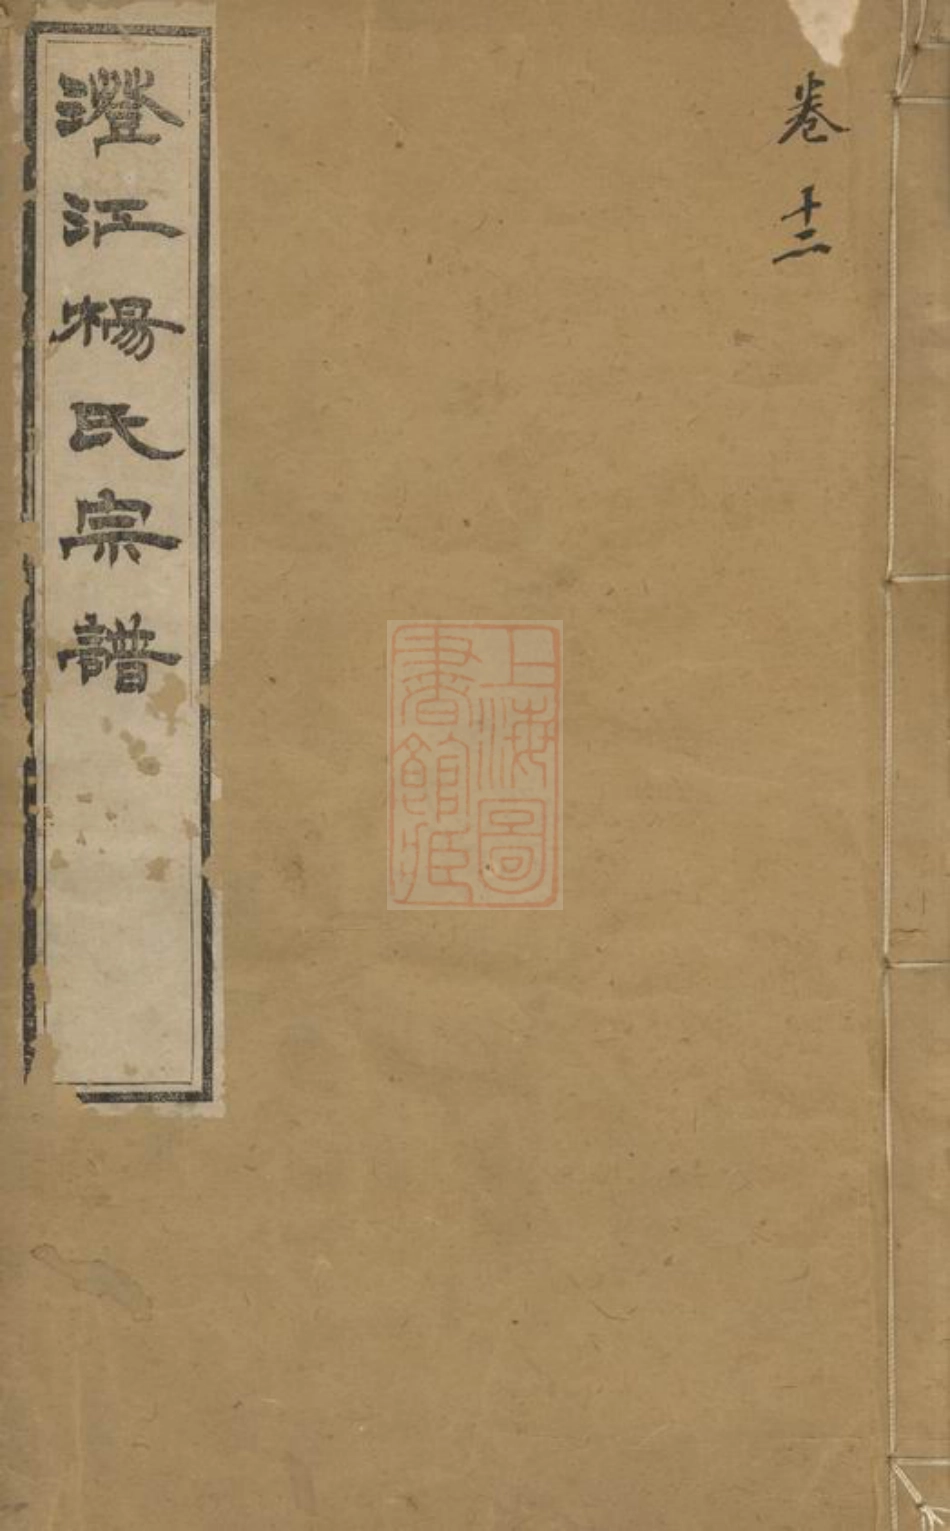 卷十二
澄江楊氏宗譜
上海圖
書館藏